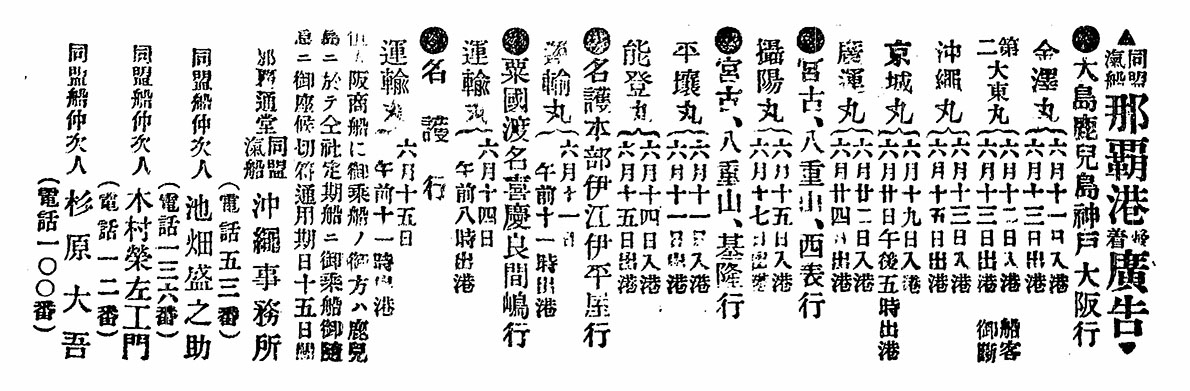 ▲同盟汽船那覇港發着廣告▼
●大島鹿兒島神戸大阪行
金澤丸 六月十一日入港 六月十三日出港
第二大東丸 六月十二日入港 六月十三日出港 船客御斷
沖繩丸 六月十三日入港 六月十五日出港
京城丸 六月十九日入港 六月廿日午後五時出港
廣運丸 六月廿二日入港 六月廿四日出港
●宮古、八重山、西表行
攝陽丸 六月十五日入港 六月十七日出港
●宮古、八重山、基隆行
平壤丸 六月十一日入港 六月十一日出港
能登丸 六月十四日入港 六月十五日出港
●名護本部伊江伊平屋行
運輸丸 六月十一日 午前十一時出港
●粟國渡名喜慶良間嶋行
運輸丸 六月十四日 午前八時出港
●名護行
運輸丸 六月十五日 午前十一時出港
大阪商船に御乘船ノ御方ハ鹿兒
島ニ於テ仝社定期船ニ御乘船御隨
意ニ御座候切符通用期日十五日間
那覇通堂 同盟汽船 沖繩事務所
（電話五三番）
同盟船仲次人 池畑盛之助
（電話一三六番）
同盟船仲次人 木村榮左工門
（電話一二番）
同盟船仲次人 杉原大吾
（電話一〇〇番）